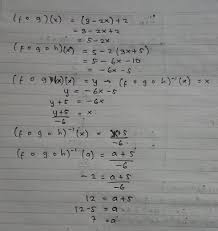 (f o g)(x) = (3-2x)+2
= 3-2x+2
= 5-2x
(f o g o h)(x) = 5-2(3x+5)
= 5-6x-10
= -6x-5
(f o g o h)(x) = y → (f o g o h)⁻¹(x) = x
y = -6x-5
y+5 = -6x
y+5/-6 = x
(f o g o h)⁻¹(x) = x+5/-6
(f o g o h)⁻¹(a) = a+5/-6
-2 = a+5/-6
12 = a+5
12-5 = a
7 = a